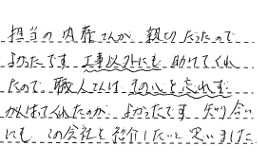 担当の内藤さんが親切だったので
よかったです 工事以外にも 助けてくれ
たので、職人さんは を忘れず
がんばってくれたのが よかったです 知り合い
にも この会社を紹介したいと思いました